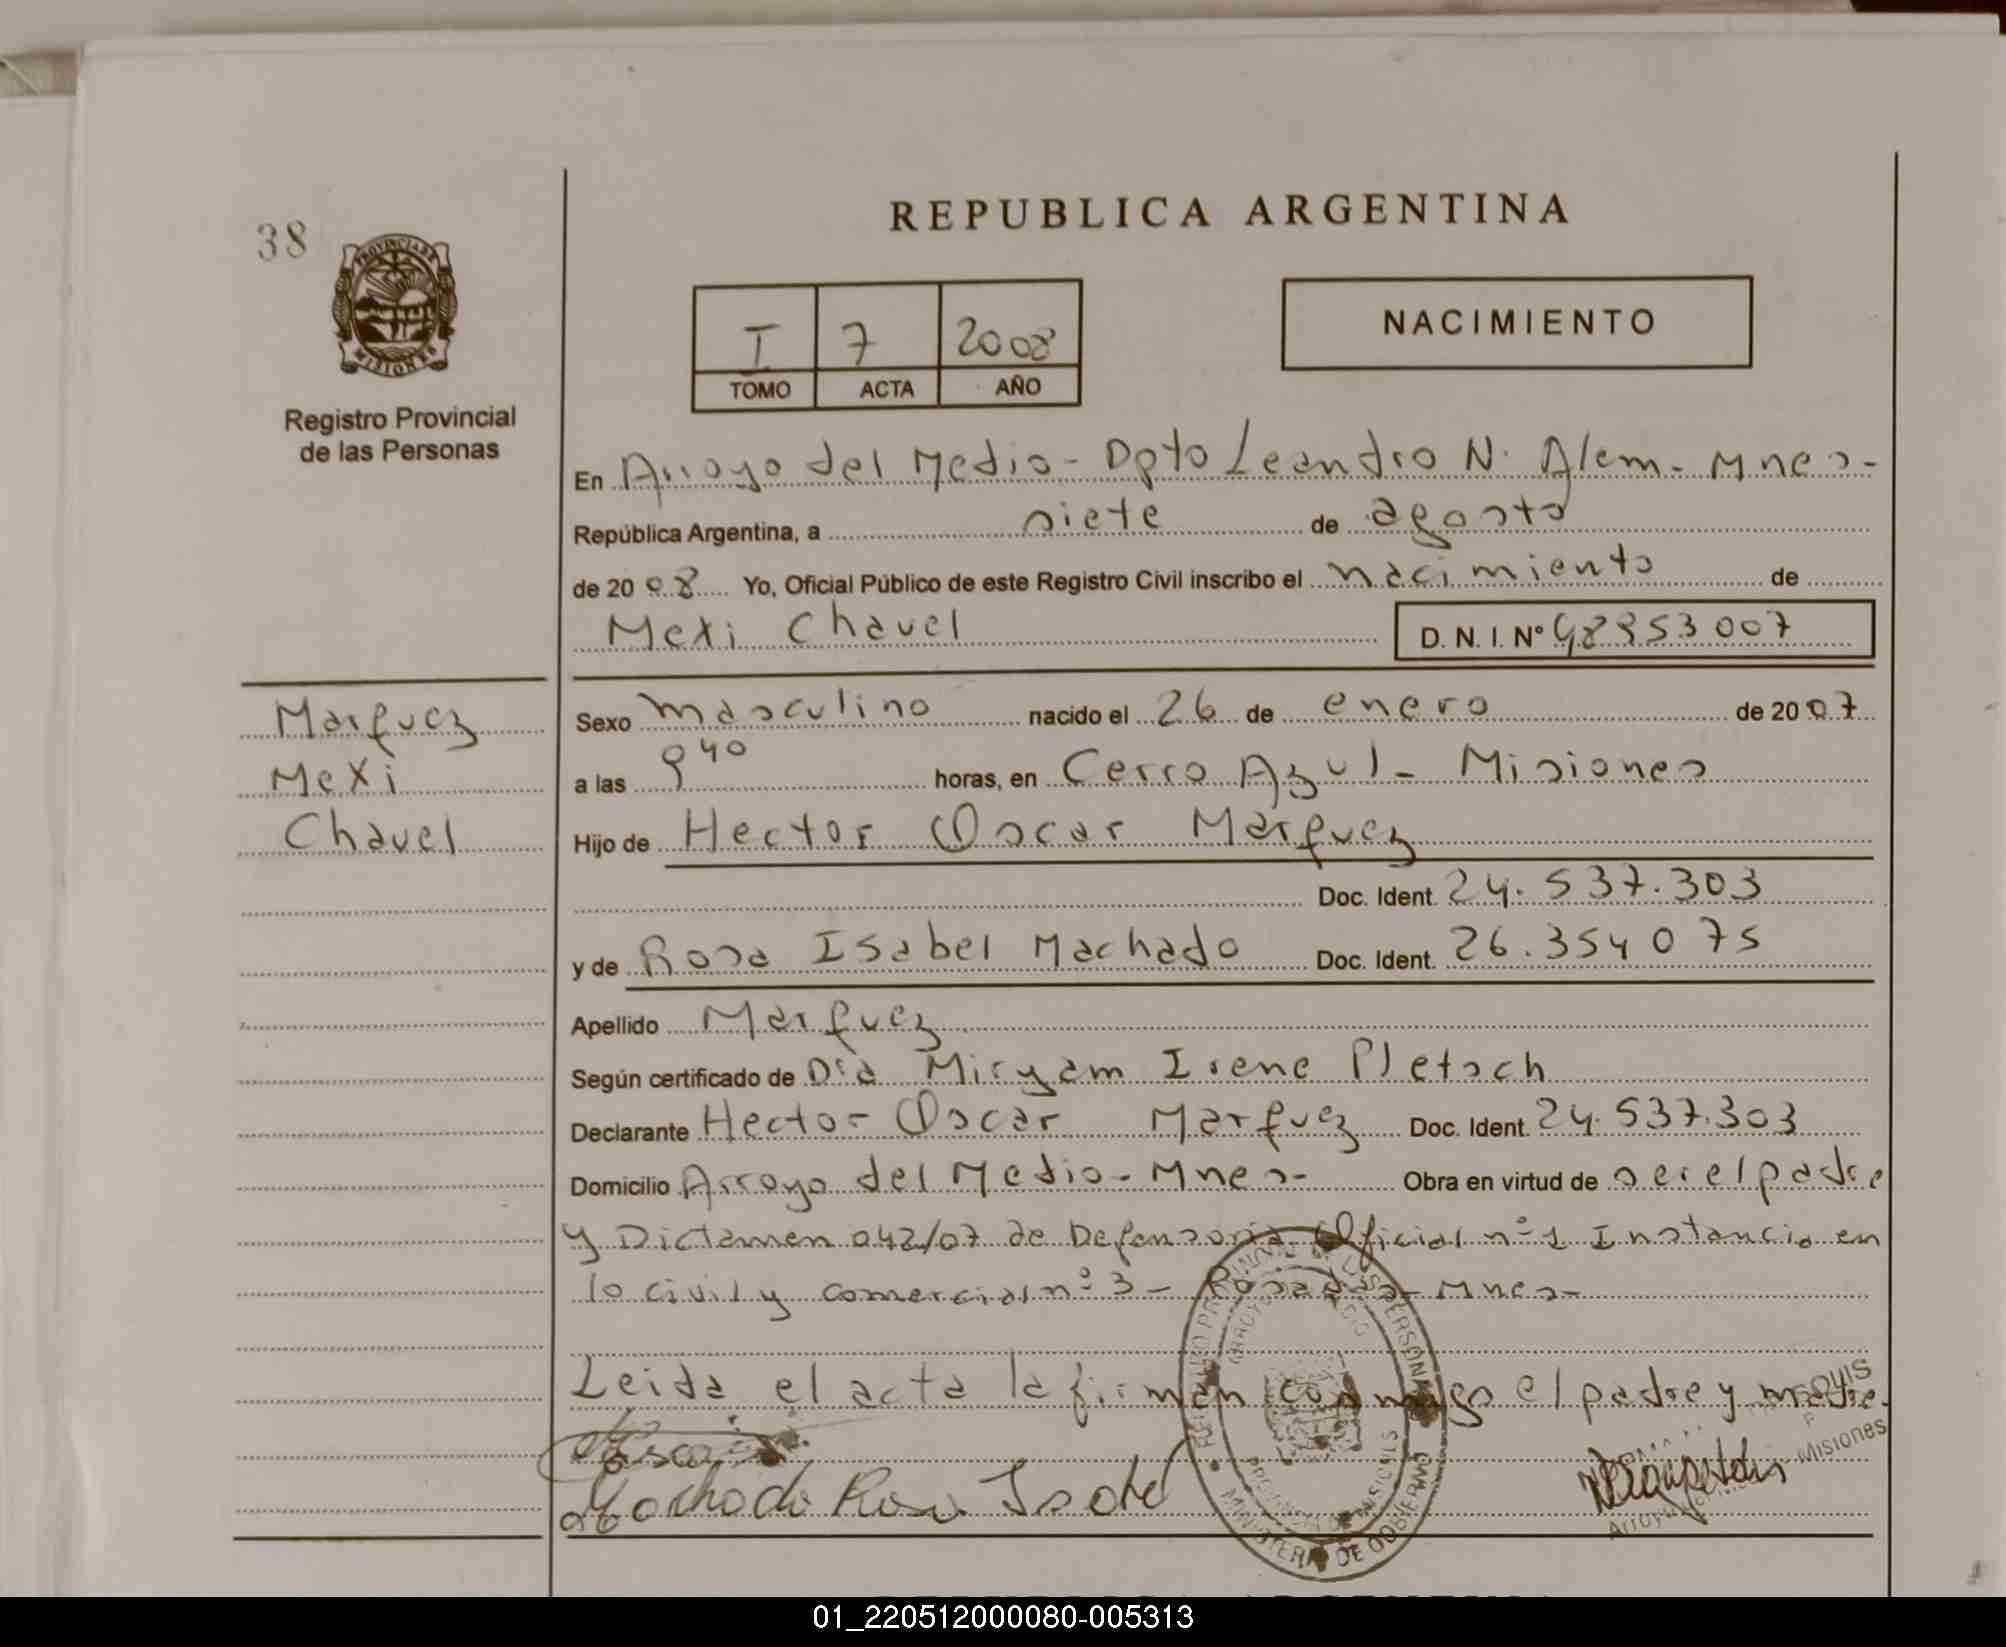 38
PROVINCIA DE
MISIONES
Registro Provincial
de las Personas
REPUBLICA ARGENTINA
I 7 2008
TOMO ACTA AÑO
NACIMIENTO
En Arroyo del Medio - Dpto Leandro N. Alem - Mnes -
República Argentina, a siete de agosto
de 2008 Yo, Oficial Público de este Registro Civil inscribo el nacimiento de
Mexi Chavel D. N. I. Nº 48853007
Marquez
Mexi
Chavel
Sexo masculino nacido el 26 de enero de 2007
a las 9 40 horas, en Cerro Azul - Misiones
Hijo de Hector Oscar Marquez
Doc. Ident. 24.537.303
y de Rosa Isabel Machado Doc. Ident. 26.354075
Apellido Marquez
Según certificado de Dra Miryam Irene Pletsch
Declarante Hector Oscar Marquez Doc. Ident. 24.537.303
Domicilio Arroyo del Medio - Mnes - Obra en virtud de ser el padre
y Dictamen 042/07 de Defensoria Oficial nº 1 Instancia en
lo civil y comercial nº 3 - Posadas - Mnes -
Leida el acta la firman conmigo el padre y madre.
Machado Rosa Isabel
Misiones
MINISTERIO DE GOBIERNO
01_220512000080-005313